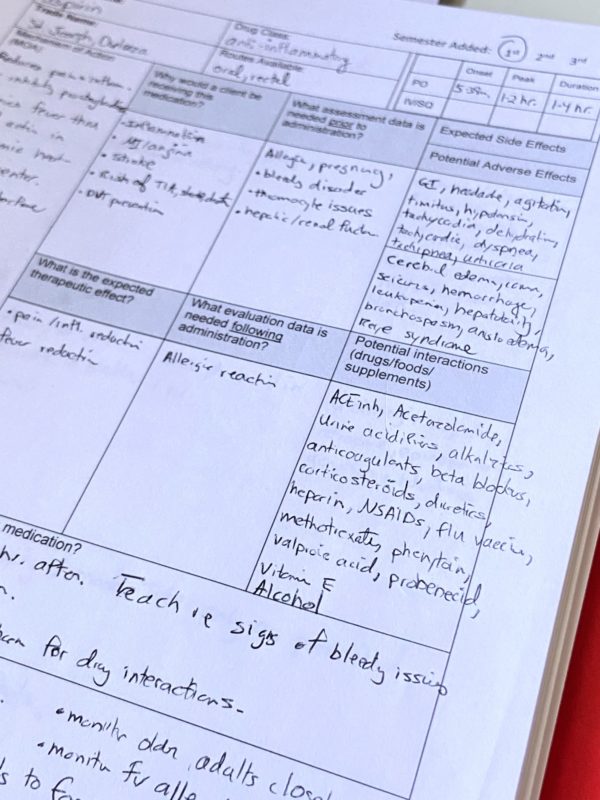 Semester Added: 1st 2nd 3rd
Trade Name:
Drug Class:
anti-inflammatory
St Joseph, Durlaza
Routes Available:
oral, rectal
Onset Peak Duration
PO 5-30m. 1-2 hr. 1-4 hr.
IV/SQ
fever
Why would a client be
receiving this
medication?
• Inflammation
• MI/angina
• Stroke
• Risk of TIA,
• DVT prevention
What assessment data is
needed prior to
administration?
Allergies, pregnancy,
• bleeding disorder
• thrombocyte issues
• hepatic/renal function
Expected Side Effects
Potential Adverse Effects
GI, headache, agitation,
tinnitus, hypotension,
tachycardia, dehydration,
tachycardia, dyspnea,
tachypnea, urticaria
cerebral edema, coma,
seizures, hemorrhage,
leukopenia, hepatotoxicity,
bronchospasm, angioedema,
Reye syndrome
What is the expected
therapeutic effect?
• pain/infl. reduction
fever reduction
What evaluation data is
needed following
administration?
Allergic reaction
Potential interactions
(drugs/foods/
supplements)
ACE inh, Acetazolamide,
urine acidifiers, alkalizers,
anticoagulants, beta blockers,
corticosteroids, diuretics,
heparin, NSAIDs, flu vaccine,
methotrexate, phenytoin,
valproic acid, probenecid,
Vitamin E
Alcohol
medication?
hr. after. Teach re signs of bleeding issues
for drug interactions.
• monitor older adults
• monitor for
to